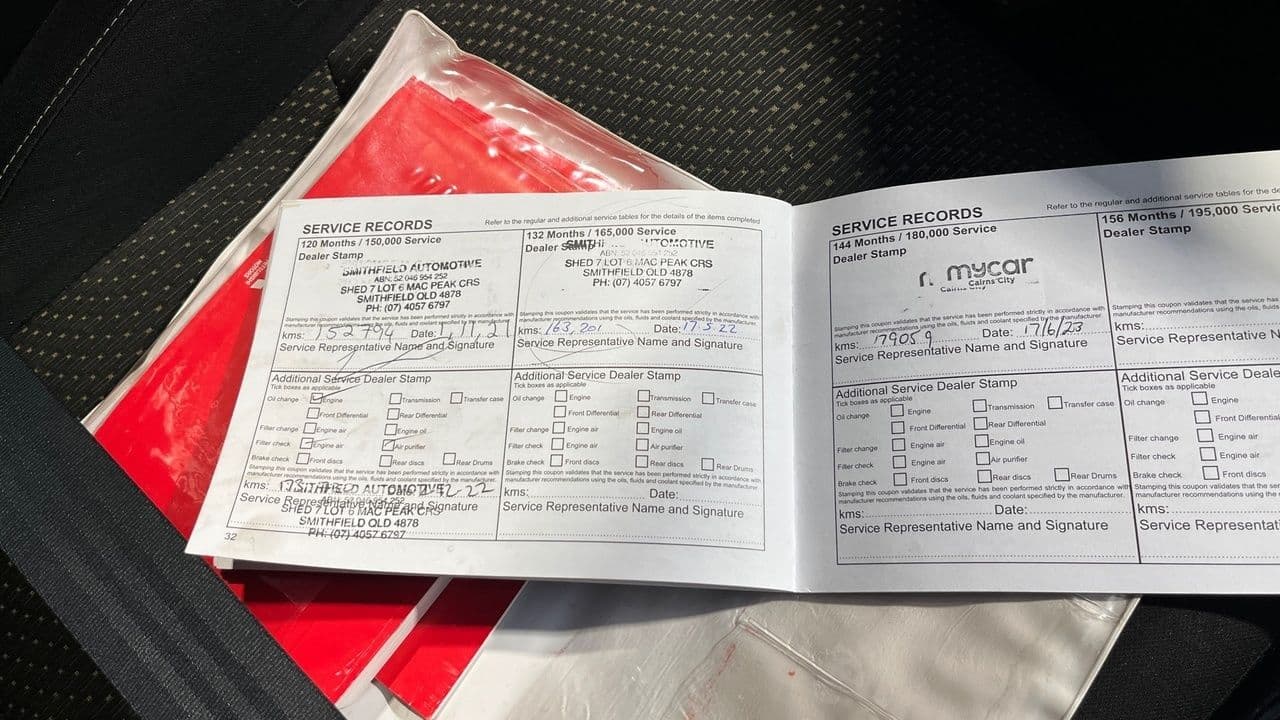 SERVICE RECORDS
Refer to the regular and additional service tables for the details of the items completed
120 Months / 150,000 Service
Dealer Stamp
SMITHFIELD AUTOMOTIVE
ABN: 52 046 954 252
SHED 7 LOT 6 MAC PEAK CRS
SMITHFIELD QLD 4878
PH: (07) 4057 6797
Stamping this coupon validates that the service has been performed strictly in accordance with
manufacturer recommendations using the oils, fluids and coolant specified by the manufacturer
kms: 153794 Date:
Service Representative Name and Signature
Additional Service Dealer Stamp
Tick boxes as applicable
Oil change Engine Transmission Transfer case
Front Differential Rear Differential
Filter change Engine air Engine oil
Filter check Engine air Air purifier
Brake check Front discs Rear discs Rear Drums
Stamping this coupon validates that the service has been performed strictly in accordance with
manufacturer recommendations using the oils, fluids and coolant specified by the manufacturer.
kms: SMITHFIELD AUTOMOTIVE
Service Representative Name and Signature
SHED 7 LOT 6 MAC PEAK CRS
SMITHFIELD QLD 4878
PH: (07) 4057 6797
32
132 Months / 165,000 Service
Dealer Stamp
AUTOMOTIVE
ABN: 52 046 954 252
SHED 7 LOT 6 MAC PEAK CRS
SMITHFIELD QLD 4878
PH: (07) 4057 6797
Stamping this coupon validates that the service has been performed strictly in accordance with
manufacturer recommendations using the oils, fluids and coolant specified by the manufacturer
kms: 163,201 Date: 17.5.22
Service Representative Name and Signature
Additional Service Dealer Stamp
Tick boxes as applicable
Oil change Engine Transmission Transfer case
Front Differential Rear Differential
Filter change Engine air Engine oil
Filter check Engine air Air purifier
Brake check Front discs Rear discs Rear Drums
Stamping this coupon validates that the service has been performed strictly in accordance with
manufacturer recommendations using the oils, fluids and coolant specified by the manufacturer.
kms: Date:
Service Representative Name and Signature
SERVICE RECORDS
Refer to the regular and additional service tables for the de
144 Months / 180,000 Service
Dealer Stamp
mycar
Cairns City
Stamping this coupon validates that the service has been performed strictly in accordance with
manufacturer recommendations using the oils, fluids and coolant specified by the manufacturer
kms: 179059 Date: 17/6/23
Service Representative Name and Signature
Additional Service Dealer Stamp
Tick boxes as applicable
Oil change Engine Transmission Transfer case
Front Differential Rear Differential
Filter change Engine air Engine oil
Filter check Engine air Air purifier
Brake check Front discs Rear discs Rear Drums
Stamping this coupon validates that the service has been performed strictly in accordance with
manufacturer recommendations using the oils, fluids and coolant specified by the manufacturer.
kms: Date:
Service Representative Name and Signature
156 Months / 195,000 Servic
Dealer Stamp
Stamping this coupon validates that the service has
manufacturer recommendations using the oils, fluids
kms:
Service Representative N
Additional Service Deale
Tick boxes as applicable
Oil change Engine
Front Differential
Filter change Engine air
Filter check Engine air
Brake check Front discs
Stamping this coupon validates that the ser
manufacturer recommendations using the
kms:
Service Representat